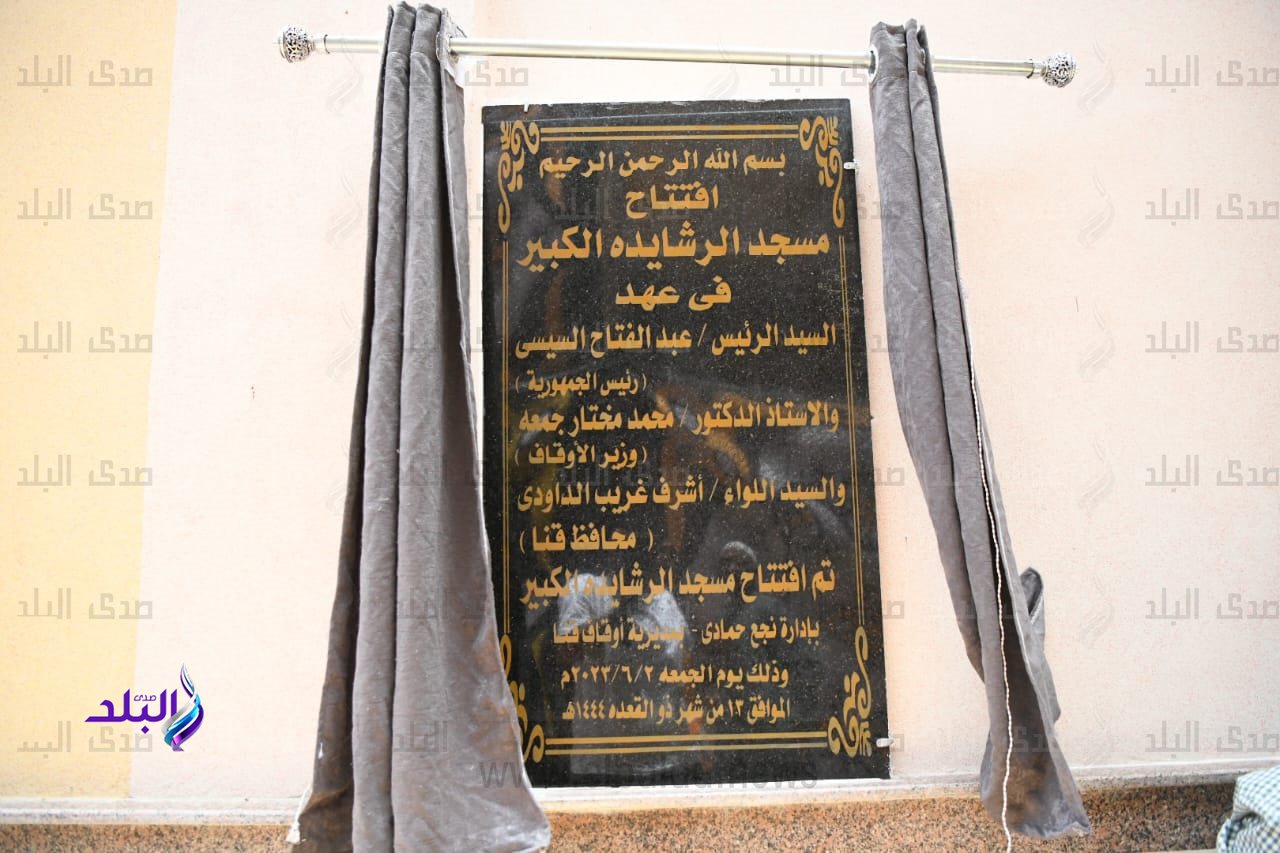 بسم الله الرحمن الرحيم
افتتاح
مسجد الرشايده الكبير
فى عهد
السيد الرئيس / عبد الفتاح السيسى
( رئيس الجمهورية )
والاستاذ الدكتور / محمد مختار جمعه
( وزير الأوقاف )
والسيد اللواء / أشرف غريب الداودى
( محافظ قنا )
تم افتتاح مسجد الرشايده الكبير
بإدارة نجع حمادى - بمديرية أوقاف قنا
وذلك يوم الجمعه ٢٠٢٣/٦/٢م
الموافق ١٣ من شهر ذو القعده ١٤٤٤هـ
صدى البلد